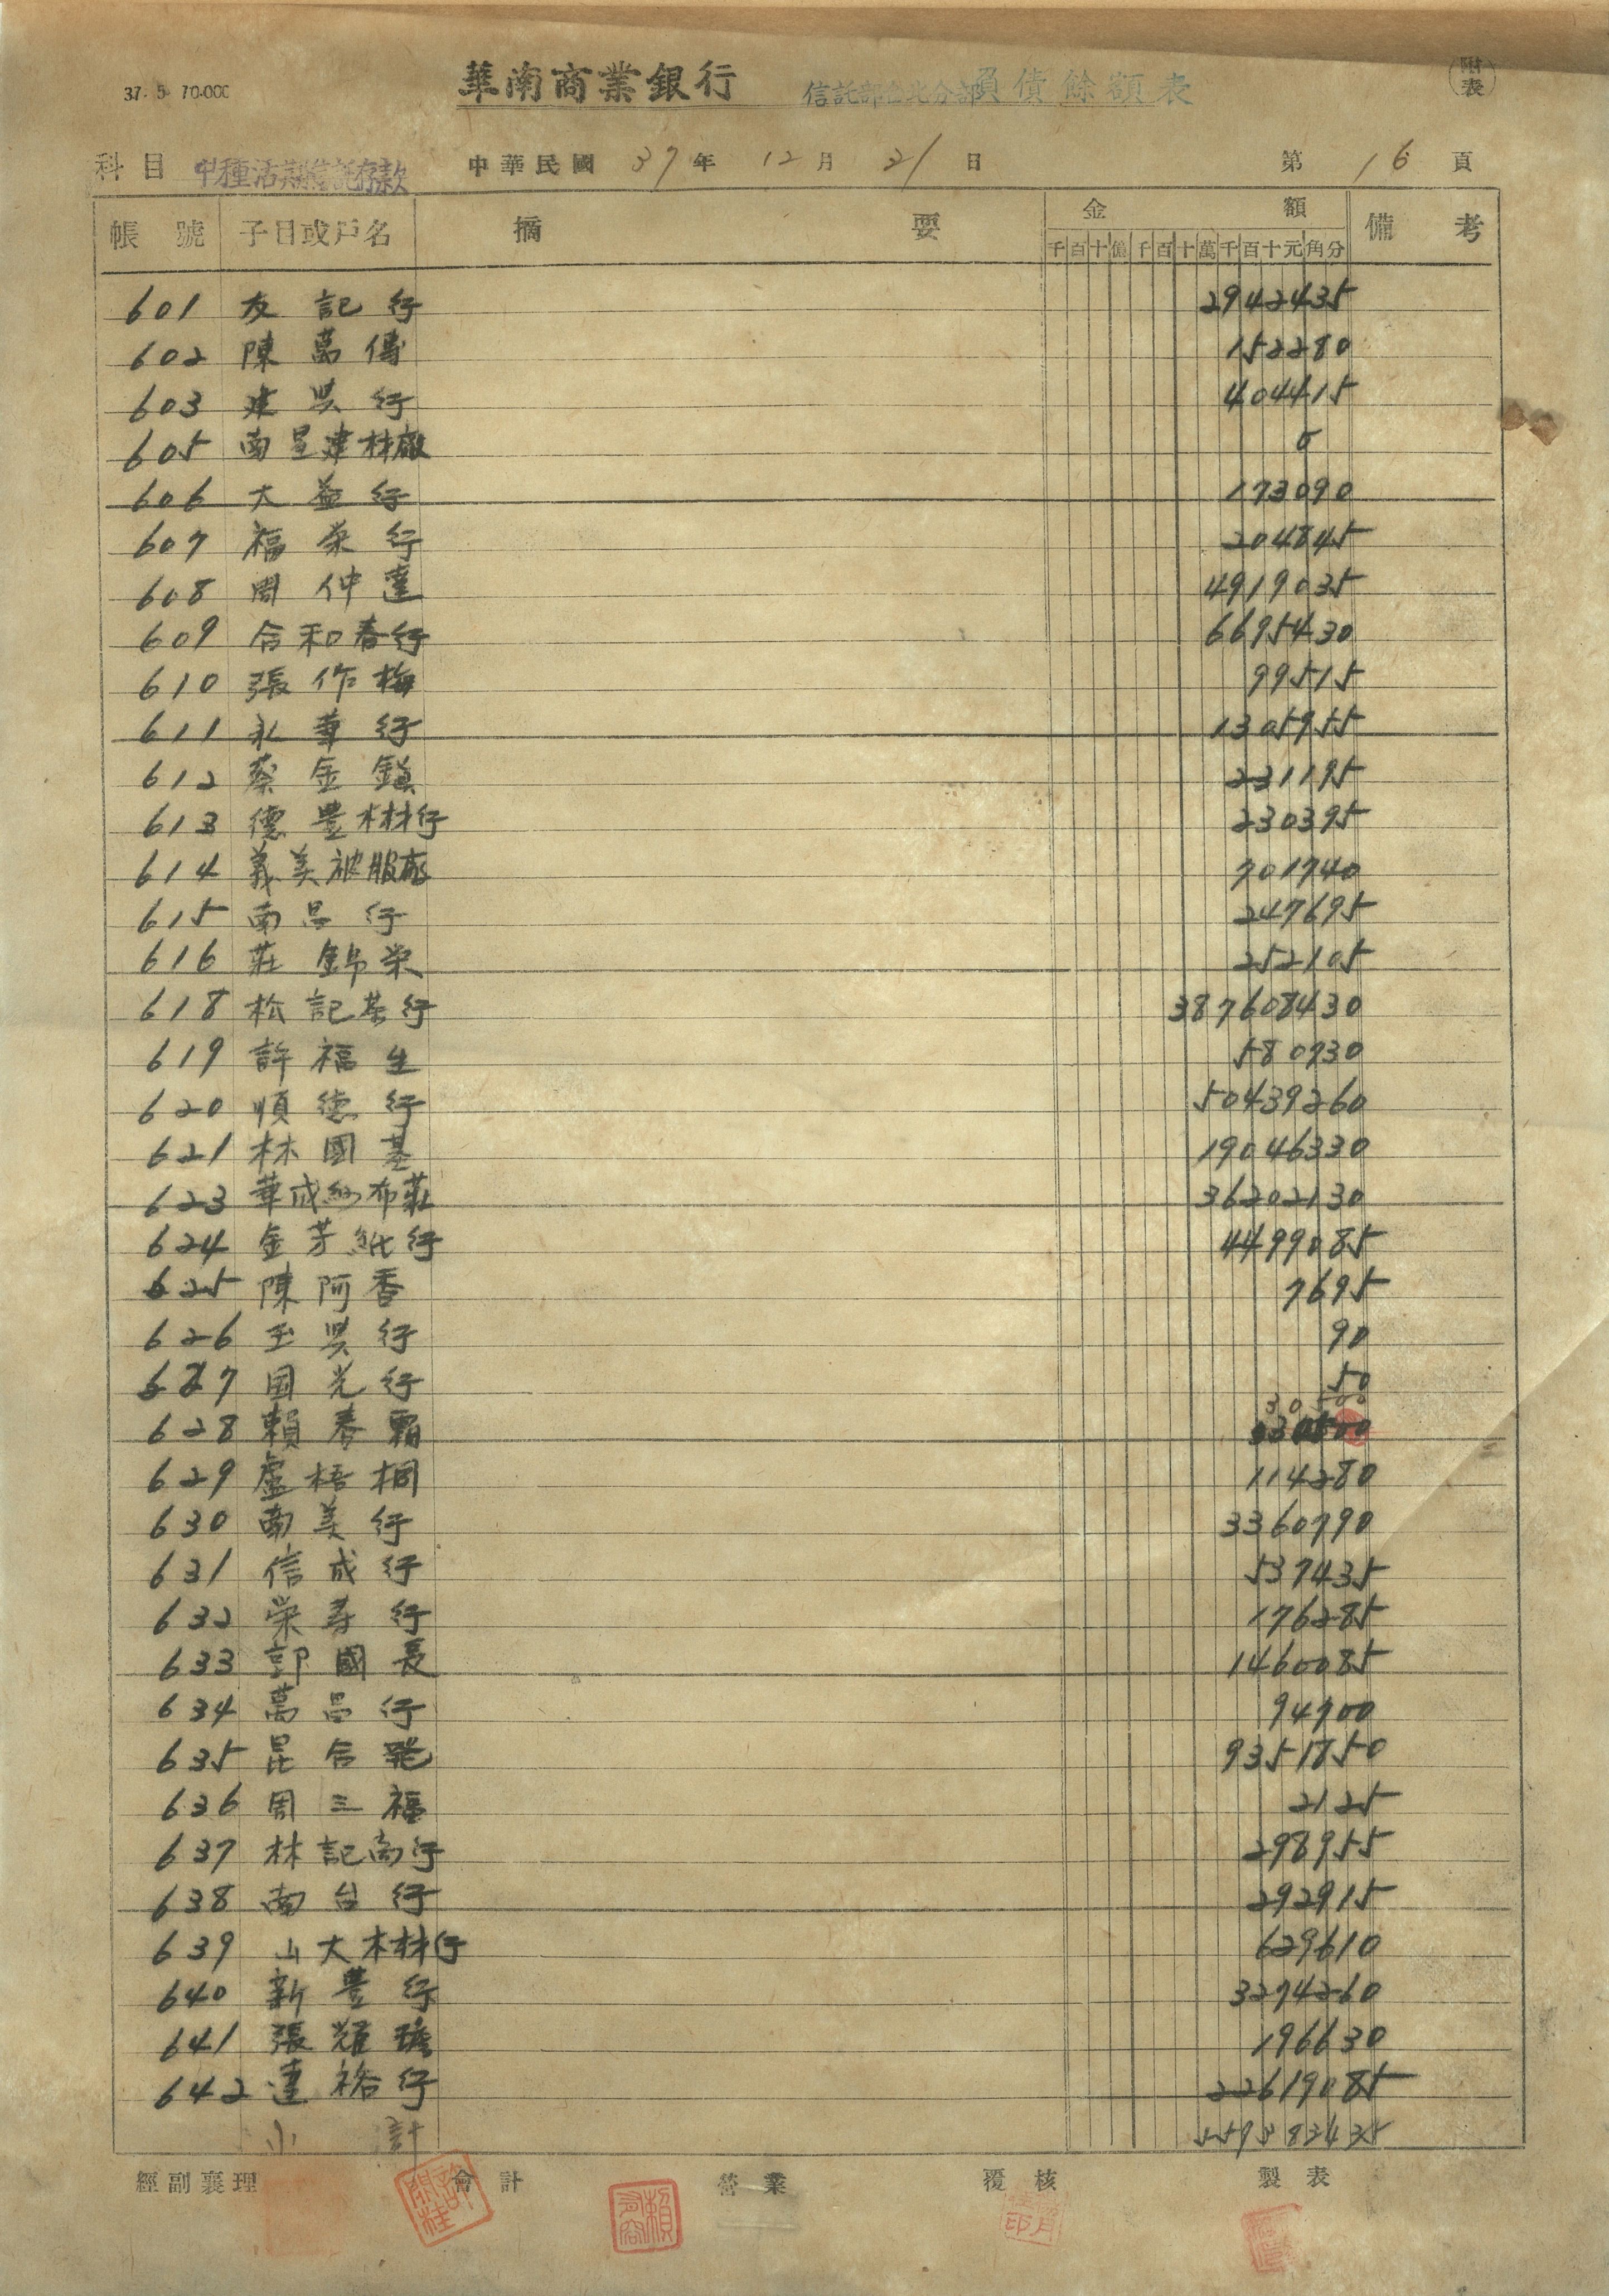 37. 5. 70.000
華南商業銀行 信託部台北分部負債餘額表 附表
科目 甲種活期信託存款 中華民國 37 年 12 月 21 日 第 16 頁
帳號 子目或戶名 摘要 金額 備考
千百十億千百十萬千百十元角分
601 友記行 2942435
602 陳萬傳 152280
603 建興行 404415
605 南星建材廠 5
606 大益行 173090
607 福榮行 204845
608 周仲達 4919035
609 合和春行 6695430
610 張作梅 99515
611 永華行 1305955
612 蔡金鎮 231195
613 德豊木材行 230395
614 義美被服廠 701740
615 南昌行 247695
616 莊錦榮 252105
618 松記茶行 387608430
619 許福生 580730
620 順德行 50439260
621 林國基 19046330
623 華成紗布莊 36202130
624 金芳紙行 4499085
625 陳阿香 7695
626 玉興行 90
627 國光行 50
30500
628 賴春霜
629 盧梧桐 114280
630 南美行 3360790
631 信成行 537435
632 榮壽行 176285
633 郭國長 1460085
634 萬昌行 94700
635 昆合發 9351850
636 周三福 2125
637 林記商行 298955
638 南台行 292915
639 山大木材行 629610
640 新豊行 3274260
641 張耀 196630
642 達裕行 22619085
小計 559383435
經副襄理 會計 營業 覆核 製表